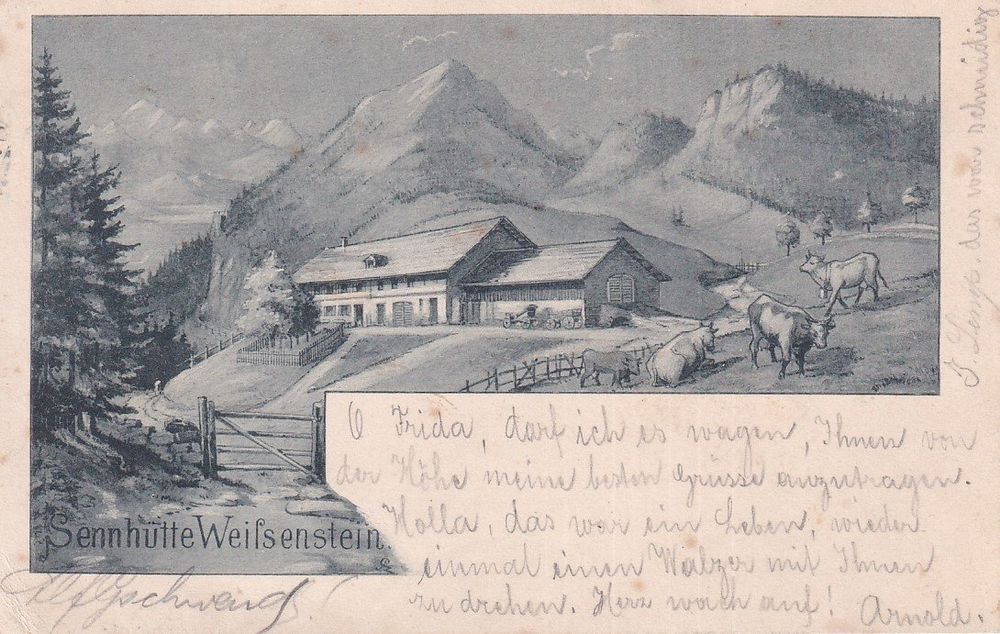 Sennhütte Weißenstein.
O Frida, darf ich es wagen, Ihnen von
der Höhe meine besten Grüsse anzutragen.
Holla, das war ein Leben, wieder
einmal einen Walzer mit Ihnen
zu drehen. Herz wach auf! Arnold.
Gschwend
das war schneidig